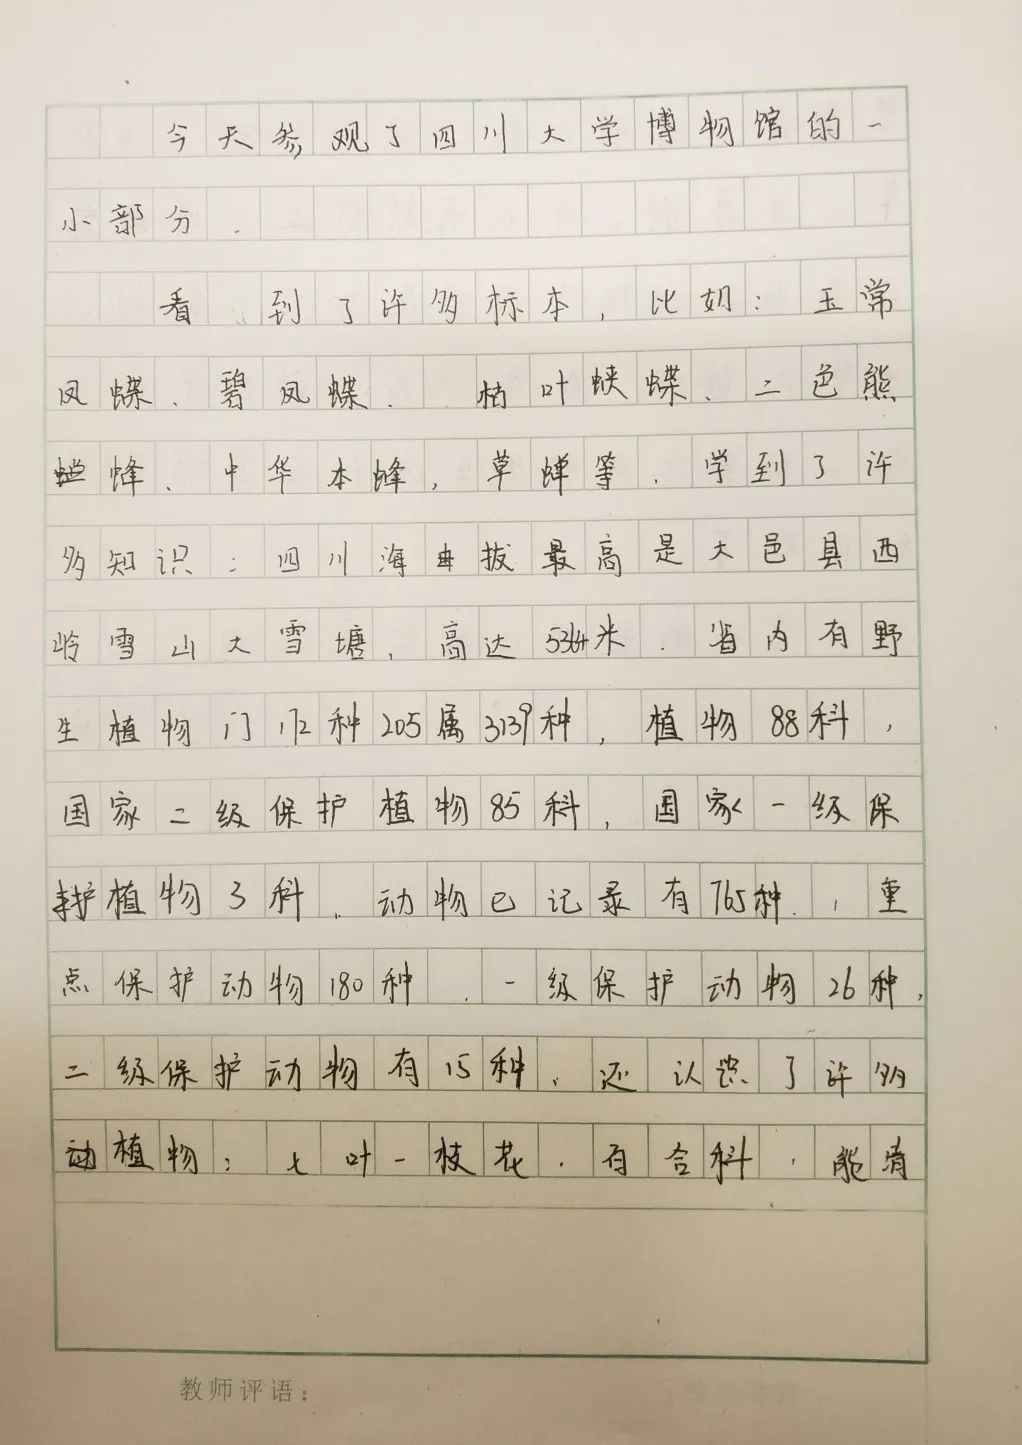 今天参观了四川大学博物馆的一
小部分.
看到了许多标本,比如:玉带
凤蝶、碧凤蝶、枯叶蛱蝶、二色熊
蜂、中华本蜂,草蝉等.学到了许
多知识:四川海拔最高是大邑县西
岭雪山大雪塘,高达5364米.省内有野
生植物门172种205属3139种,植物88科,
国家二级保护植物85科,国家一级保
护植物3科.动物已记录有765种,重
点保护动物180种.一级保护动物26种,
二级保护动物有15种.还认识了许多
动植物:七叶一枝花.百合科,能清
教师评语: